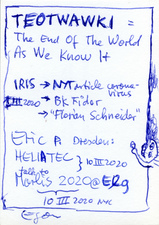 TEOTWAWKI =
The End Of The World
As We Know It
IRIS → NYT article corona-
virus
III 2020 → BK Fidor
→ "Florian Schneider"
Eric P. Dresden:
HELIATEC } 10 III 2020
talk to
Marlis 2020 @
10 III 2020 NYC